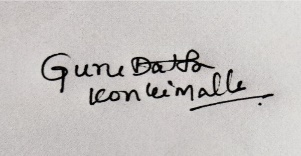 Guru Datta
Konkimalla